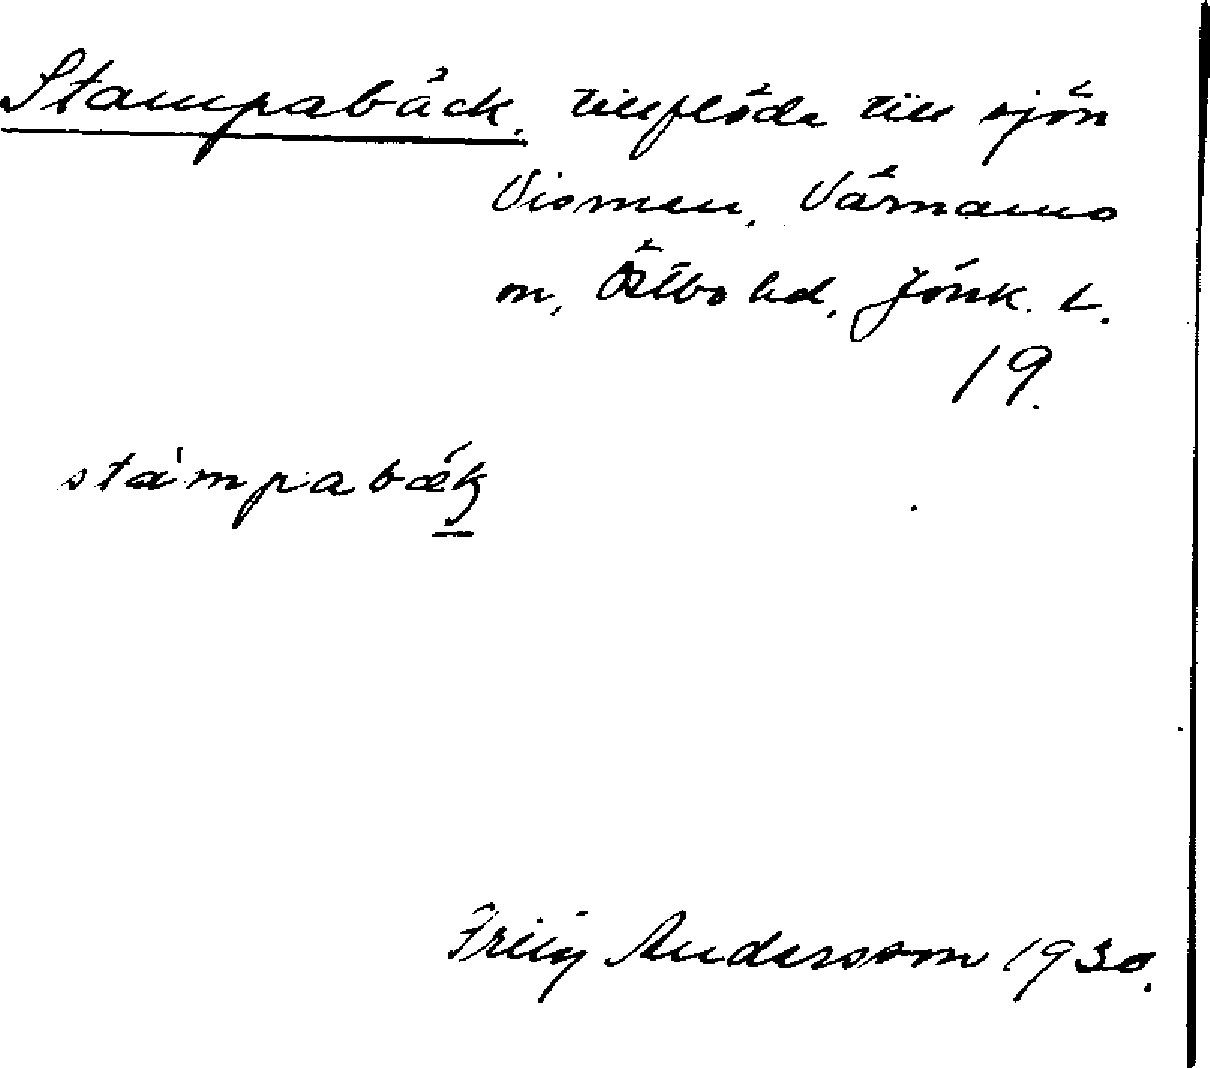 Stampabäck. tillflöde till sjön
Vismen, Värnamo
sn, Östbo hd, Jönk. L.
19.
stámpabæk
Andersson 1930.